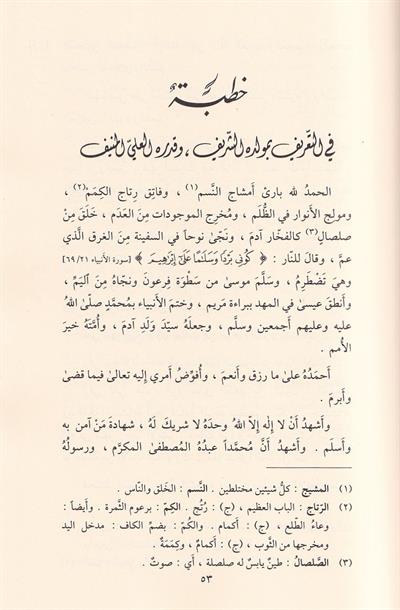 خطبةٌ
في التّعريف بمولده الشّريف ، وقدره العليّ المنيف
الحمدُ لله بارئ أمشاج النَّسم(١) ، وفاتِق رتاج الكِمَم(٢) ،
ومولج الأنوار في الظُّلَم ، ومُخرِج الموجودات مِنَ العَدَم ، خَلَقَ مِنْ
صلصالٍ(٣) كالفخّار آدمَ ، ونَجّىٰ نوحاً في السفينة مِنَ الغرق الَّذي
عمَّ ، وقال للنّار : ﴿ كُونِى بَرْدًا وَسَلَٰمًا عَلَىٰٓ إِبْرَٰهِيمَ ﴾ [سورة الأنبياء ٦٩/٢١]
وهيَ تَضْطَرِمُ ، وسلَّمَ موسىٰ من سَطْوَة فِرعونَ ونجّاهُ مِنَ اليَمِّ ،
وأَنطقَ عيسىٰ في المهد ببراءة مَريم ، وختمَ الأنبياء بمُحمَّدٍ صلّىٰ اللهُ
عليه وعليهم أجمعين وسلَّم ، وجعلَهُ سيّدَ وَلَدِ آدمَ ، وأُمَّتَهُ خيرَ
الأُمم .
أَحمَدُهُ علىٰ ما رزق وأَنعمَ ، وأُفوِّضُ أمري إليه تعالىٰ فيما قضىٰ
وأَبرمَ .
وأَشهدُ أَنْ لا إلٰه إلاَّ اللهُ وحدَهُ لا شريكَ لهُ ، شهادةَ مَنْ آمن به
وأَسلَم . وأَشهدُ أَنَّ مُحمَّداً عبدُهُ المصطفىٰ المكرَّم ، ورسولُهُ
(١) المشيج : كلُّ شيئين مختلطين . النَّسم : الخَلق والنّاس .
(٢) الرِّتاج : الباب العظيم ، (ج) : رُتُج . الكِمّ : برعوم الثَّمرة . وأيضاً :
وعاءُ الطَّلع ، (ج) : أكمام . والكُمّ : بضمِّ الكاف : مدخل اليد
ومخرجها من الثَّوب ، (ج) : أَكمامٌ ، وكِمَمَةٌ .
(٣) الصَّلصالُ : طينٌ يابسٌ له صلصلة ، أي : صوتٌ .
٥٣